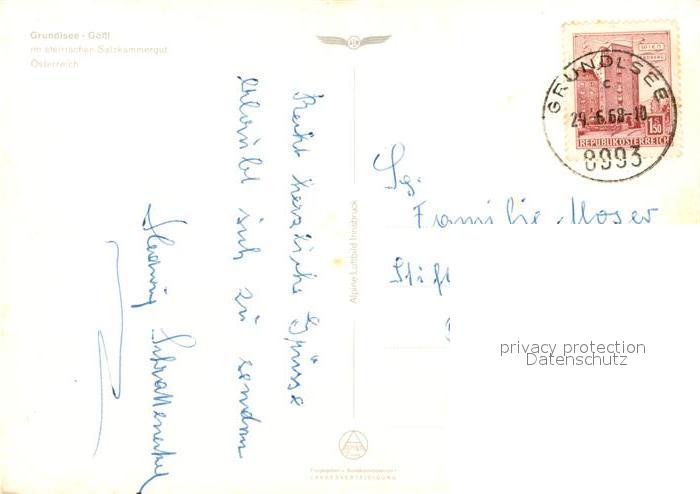 Grundlsee - Gößl
im steirischen Salzkammergut
Österreich
Recht herzliche Grüsse
erlaubt sich zu senden
Alpine Luftbild Innsbruck
WIEN
REPUBLIK ÖSTERREICH
1.50
GRUNDLSEE
c
29.-6.68-10
8993
Familie Moser
privacy protection
Datenschutz
LANDESVERTEIDIGUNG